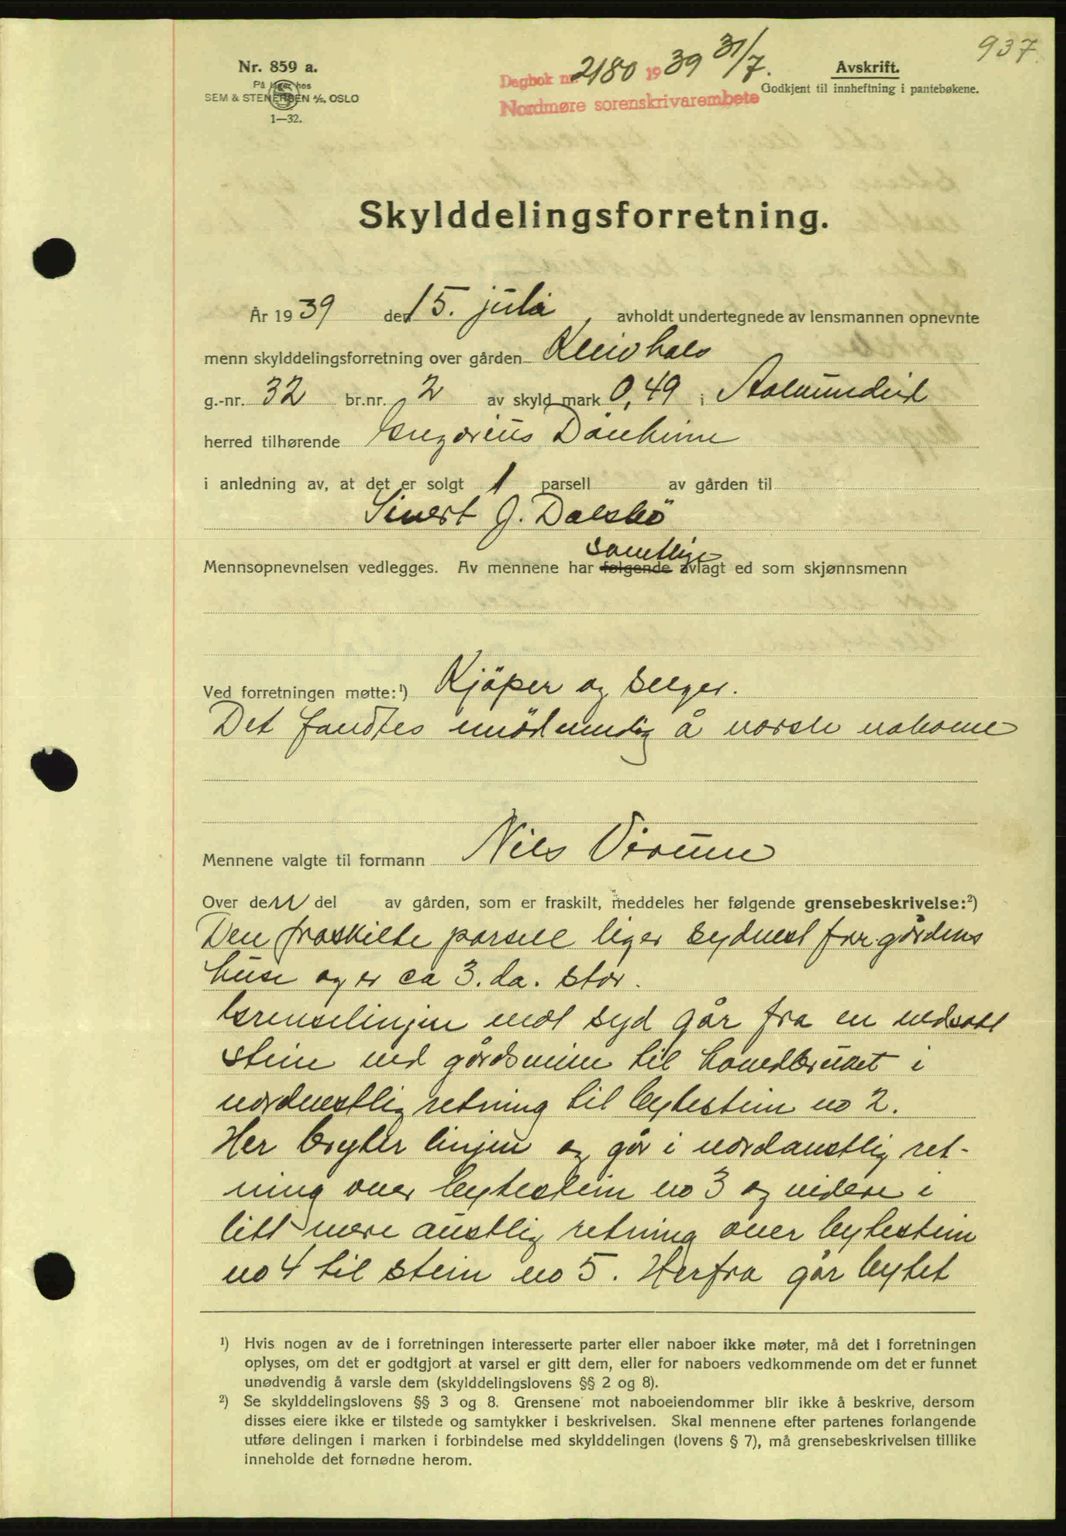 937
Nr. 859 a.
På lager hos
SEM & STENERSEN A/S, OSLO
1—32.
Dagbok nr. 2180 1939 31/7.
Nordmøre sorenskrivarembete
Avskrift.
Godkjent til innheftning i pantebøkene.
Skylddelingsforretning.
År 1939 den 15. juli avholdt undertegnede av lensmannen opnevnte
menn skylddelingsforretning over gården Kleivhals
g.-nr. 32 br.nr. 2 av skyld mark 0,49 i Aalvundeid
herred tilhørende Ingvarius Dönheim
i anledning av, at det er solgt 1 parsell av gården til
Sivert J. Dalsbö
samtlige
Mennsopnevnelsen vedlegges. Av mennene har følgende avlagt ed som skjønnsmenn
Ved forretningen møtte:¹) Kjöper og selger.
Det fandtes unödvendig å varsle naboene
Mennene valgte til formann Nils Virum
Over den del av gården, som er fraskilt, meddeles her følgende grensebeskrivelse:²)
Den fraskilte parsell liger sydvest for gårdens
huse og er ca 3. da. stor.
Grenselinjen mot syd går fra en nedsatt
stein ved gårdsveien til handbruket i
nordvestlig retning til bytestein no 2.
Her bryter linjen og går i nordaustlig ret-
ning over bytestein no 3 og videre i
litt mere austlig retning over bytestein
no 4 til stein no 5. Herfra går bytet
¹) Hvis nogen av de i forretningen interesserte parter eller naboer ikke møter, må det i forretningen
oplyses, om det er godtgjort at varsel er gitt dem, eller for naboers vedkommende om det er funnet
unødvendig å varsle dem (skylddelingslovens §§ 2 og 8).
²) Se skylddelingslovens §§ 3 og 8. Grensene mot naboeiendommer blir ikke å beskrive, dersom
disses eiere ikke er tilstede og samtykker i beskrivelsen. Skal mennene efter partenes forlangende
utføre delingen i marken i forbindelse med skylddelingen (lovens § 7), må grensebeskrivelsen tillike
inneholde det fornødne herom.